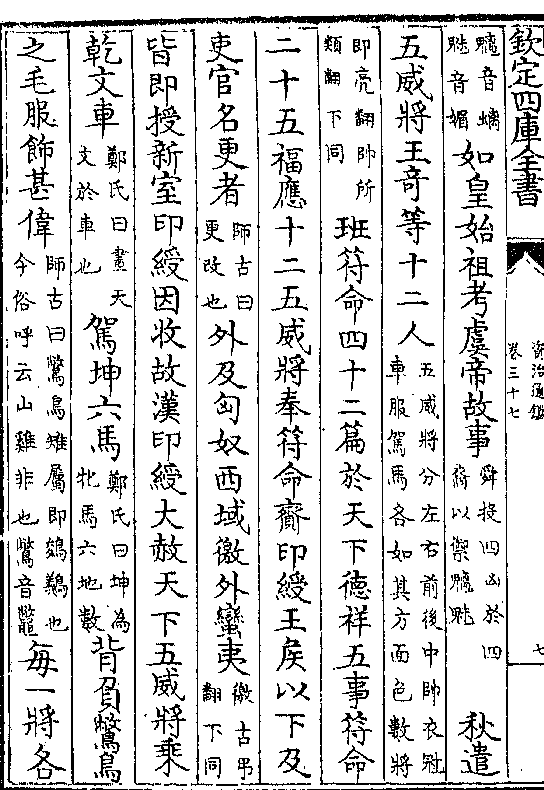 欽定四庫全書
資治通鑑
卷三十七
七
魑音螭魅音媚如皇始祖考虞帝故事舜投四凶於四裔以禦魑魅 秋遣
五威將王奇等十二人五威將分左右前後中帥衣冠車服駕馬各如其方面色數將
即亮翻帥所類翻下同班符命四十二篇於天下德祥五事符命
二十五福應十二五威將奉符命齎印綬王侯以下及
吏官名更者師古曰更改也外及匈奴西域徼外蠻夷徼古弔翻下同
皆即授新室印綬因收故漢印綬大赦天下五威將乘
乾文車鄭氏曰畫天文於車也駕坤六馬鄭氏曰坤為牝馬六地數背負鷩鳥
之毛服飾甚偉師古曰鷩鳥雉屬即鵕鸃也今俗呼云山雞非也鷩音鼈每一將各